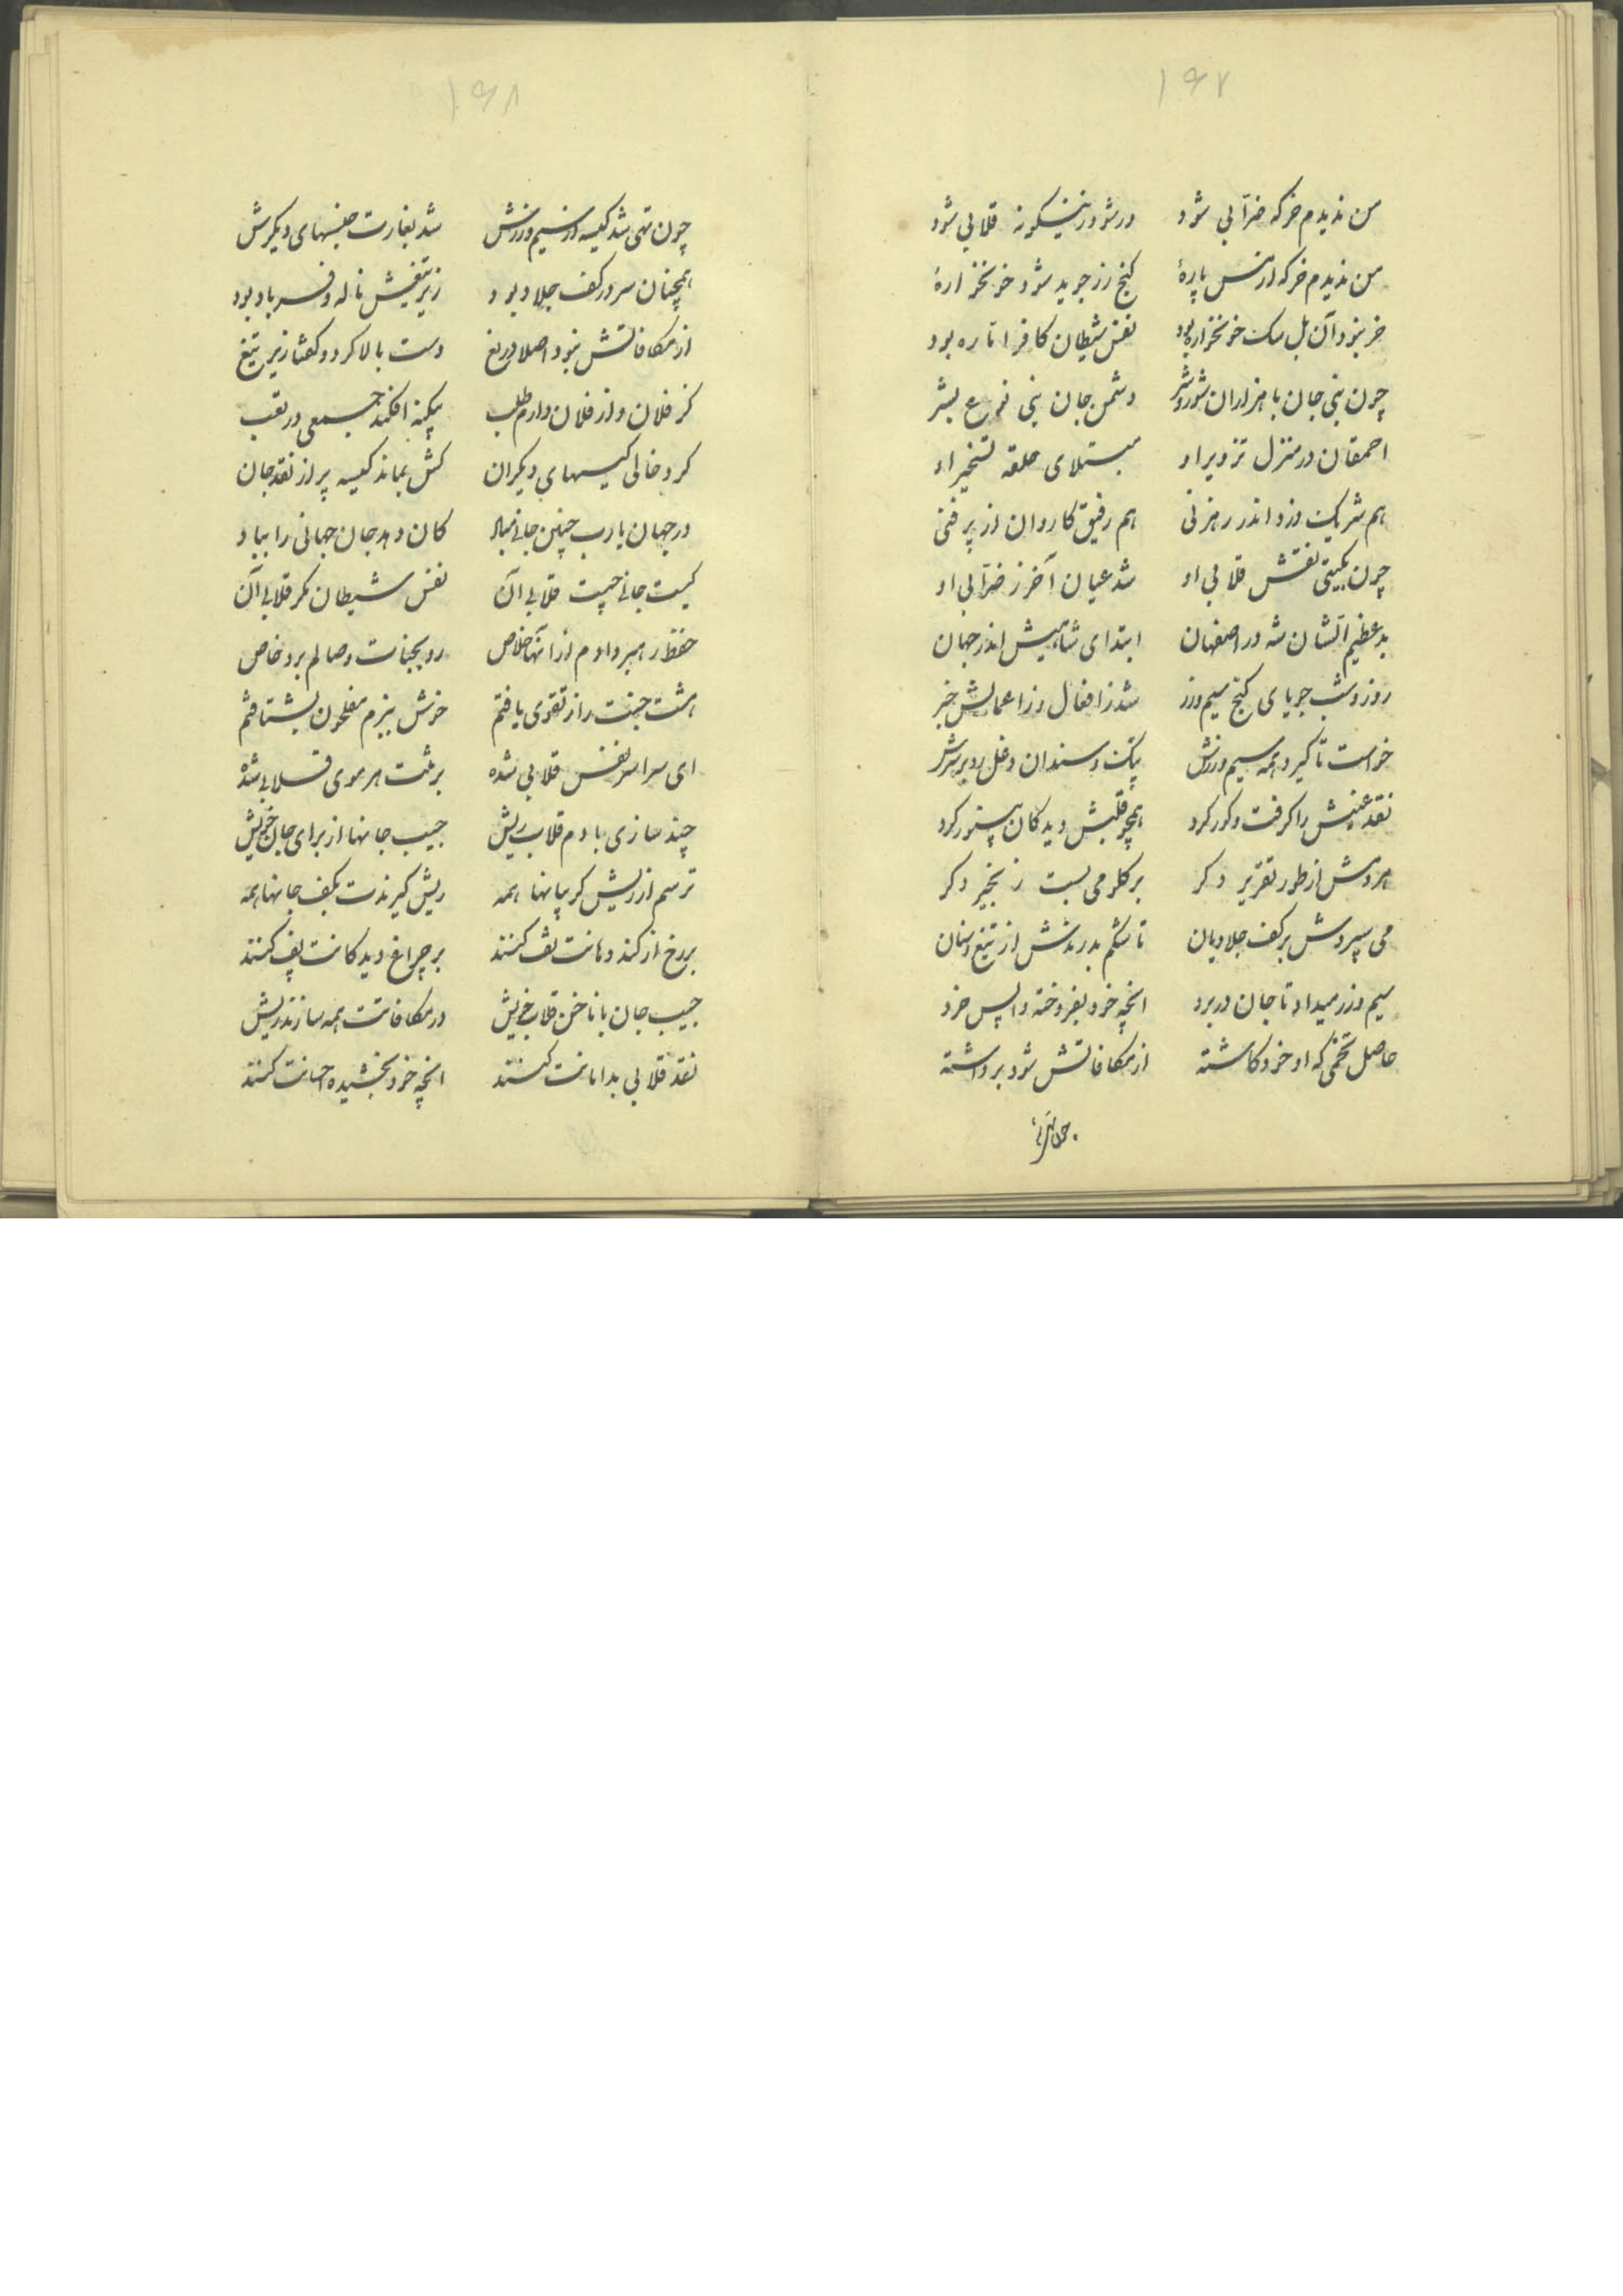 ۱۶۷
من ندیدم خر که ضرابی شود ورشود زینگونه قلابی شود
من ندیدم خر که از مس پارهٔ گنج زر جوید شود خونخوارهٔ
خر نبود آن بل سک خونخواره بود نفس شیطان کافر اماره بود
چون بنی جان با هزاران شور و شر دشمن جان بنی نوع بشر
احمقان در منزل تزویر او مبتلای حلقه تسخیر او
هم شریک دزد اندر رهزنی هم رفیق کاروان از پر فنی
چون بگیتی نقش قلابی او شد عیان آخر ز ضرابی او
بد عظیم الشان شه در اصفهان ابتدای شاهیش اندر جهان
روز و شب جویای کنج سیم و زر شد ز افعال وز اعمالش خبر
خواست تا کیرد همه سیم و زرش پتک و سندان و غل زد بر سرش
نقد عینش را کرفت و کور کرد همچو قلبش دیدکان بینور کرد
هر دمش از طور تقریر دکر بر کلو می بست زنجیر دکر
می سپردش بر کف جلادیان تا شکم بدرندش از تیغ و سنان
سیم و زر میداد تا جان در برد انچه خود بفروخته واپس خرد
حاصل تخمی که او خود کاشته از مکافاتش شود برداشته
۱۶۸
چون تهی شد کیسه از سیم و زرش شد بغارت جنسهای دیکرش
همچنان سر در کف جلاد بود زیر تیغش ناله و فریاد بود
از مکافاتش نبود اصلا دریغ دست بالا کرد و کفتا زیر تیغ
کز فلان و از فلان دارم طلب بیکنه افکند جمعی در تعب
کرد خالی کیسهای دیکران کش بماند کیسه پر از نقد جان
در جهان یارب چنین جانی مباد کان دهد جان جهانی را بباد
کیست جانی چیست قلابی آن نفس شیطان مکر قلابی آن
حفظ رهبر دادم از آنها خلاص رو بجنات وصالم برد خاص
هشت جنت را ز تقوی یافتم خوش ببزم مفلحون بشتافتم
ای سراسر نفس قلابی شده بر تنت هر موی قلابی شده
چند سازی با دم قلاب ریش جیب جانها از برای جان خویش
ترسم از ریش کریبانها همه ریش کیرندت بکف جانها همه
بر رخ از کند دهانت تف کنند بر چراغ دیدکانت پف کنند
جیب جان با ناخن قلاب خویش در مکافاتت همه سازند ریش
نقد قلابی بدامانت کنند انچه خود بخشیده احسانت کنند